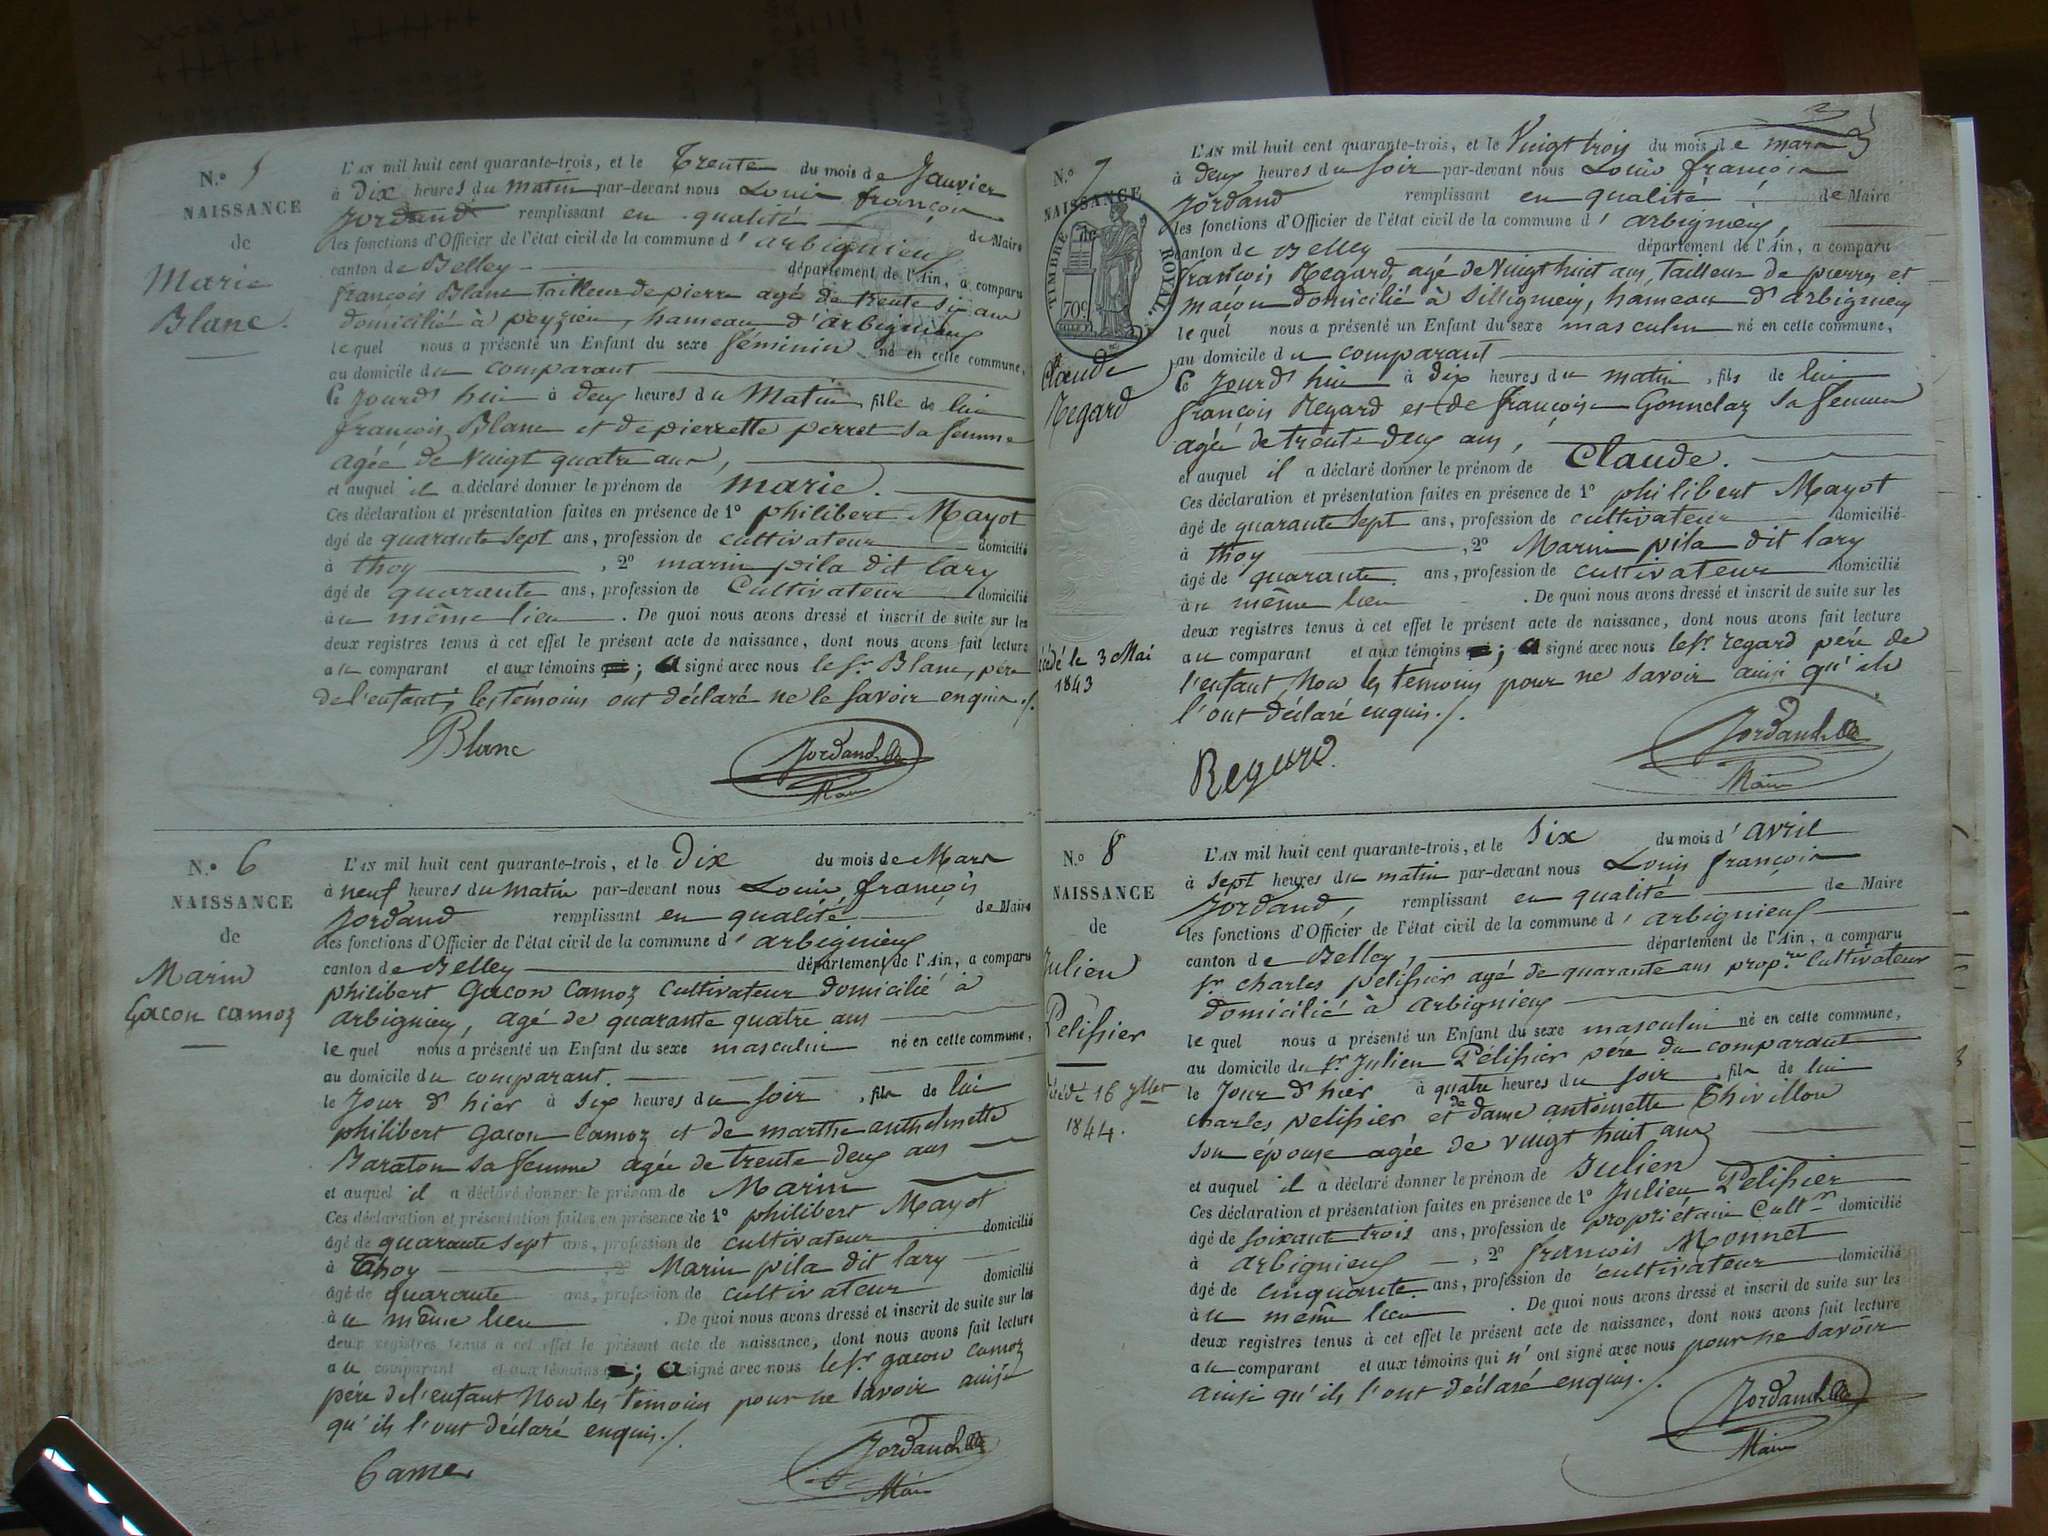 N.° 5
NAISSANCE
de
Marie
Blanc.
L'AN mil huit cent quarante-trois, et le Trente du mois de Janvier
à Dix heures du matin par-devant nous Louis françois
Jordand remplissant en qualité de Maire
les fonctions d'Officier de l'état civil de la commune d'arbignieu
canton de Belley département de l'Ain, a comparu
françois Blanc tailleur de pierre agé de trente six ans
domicilié à peyzieu, hameau d'arbignieu
lequel nous a présenté un Enfant du sexe féminin né en cette commune,
au domicile du comparant
Ce Jourd'hui à deux heures du Matin, fille de lui
françois Blanc et de pierrette perret sa femme
agée de vingt quatre ans,
et auquel il a déclaré donner le prénom de marie.
Ces déclaration et présentation faites en présence de 1° philibert Mayot
âgé de quarante sept ans, profession de cultivateur domicilié
à thoy, 2° marin pila dit lary
âgé de quarante ans, profession de Cultivateur domicilié
au même lieu. De quoi nous avons dressé et inscrit de suite sur les
deux registres tenus à cet effet le présent acte de naissance, dont nous avons fait lecture
au comparant et aux témoins ; a signé avec nous le sr. Blanc, père
de l'enfant; les témoins ont déclaré ne le savoir enquis./.
Blanc Jordand
Maire
N.° 6
NAISSANCE
de
Marin
Gacon camoz
L'AN mil huit cent quarante-trois, et le Dix du mois de Mars
à neuf heures du matin par-devant nous Louis françois
Jordand remplissant en qualité de Maire
les fonctions d'Officier de l'état civil de la commune d'arbignieu
canton de Belley département de l'Ain, a comparu
philibert Gacon Camoz cultivateur domicilié à
arbignieu, agé de quarante quatre ans
lequel nous a présenté un Enfant du sexe masculin né en cette commune,
au domicile du comparant.
le Jour d'hier à six heures du soir, fils de lui
philibert Gacon Camoz et de marthe anthelmette
Baraton sa femme agée de trente deux ans
et auquel il a déclaré donner le prénom de Marin
Ces déclaration et présentation faites en présence de 1° philibert Mayot
âgé de quarante sept ans, profession de cultivateur domicilié
à Thoy, 2° Marin pila dit lary
âgé de quarante ans, profession de cultivateur domicilié
au même lieu. De quoi nous avons dressé et inscrit de suite sur les
deux registres tenus à cet effet le présent acte de naissance, dont nous avons fait lecture
au comparant et aux témoins ; a signé avec nous le sr. gacon camoz
père de l'enfant Non les témoins pour ne savoir ainsi
qu'ils l'ont déclaré enquis./.
Jordand
Maire
N.° 7
NAISSANCE
de
TIMBRE ROYAL
70c
Claude
Regard
décédé le 3 Mai
1843
L'AN mil huit cent quarante-trois, et le Vingt trois du mois de mars
à deux heures du soir par-devant nous Louis françois
Jordand remplissant en qualité de Maire
les fonctions d'Officier de l'état civil de la commune d'arbignieu,
canton de Belley département de l'Ain, a comparu
françois Regard, agé de Vingt huit ans, tailleur de pierres et
maçon domicilié à Sillignieu, hameau d'arbignieu
lequel nous a présenté un Enfant du sexe masculin né en cette commune,
au domicile du comparant
Ce Jourd'hui à dix heures du matin, fils de lui
françois Regard et de françoise Gonnelaz sa femme
agée de trente deux ans,
et auquel il a déclaré donner le prénom de Claude.
Ces déclaration et présentation faites en présence de 1° philibert Mayot
âgé de quarante sept ans, profession de cultivateur domicilié
à thoy, 2° Marin pila dit lary
âgé de quarante ans, profession de cultivateur domicilié
au même lieu. De quoi nous avons dressé et inscrit de suite sur les
deux registres tenus à cet effet le présent acte de naissance, dont nous avons fait lecture
au comparant et aux témoins ; a signé avec nous le sr. regard père de
l'enfant, Non les témoins pour ne savoir ainsi qu'ils
l'ont déclaré enquis./.
Regard Jordand
Maire
N.° 8
NAISSANCE
de
Julien
Pelissier
décédé 16 Jllet
1844.
L'AN mil huit cent quarante-trois, et le Six du mois d'avril
à sept heures du matin par-devant nous Louis françois
Jordand, remplissant en qualité de Maire
les fonctions d'Officier de l'état civil de la commune d'arbignieu
canton de Belley, département de l'Ain, a comparu
sr. charles pelissier agé de quarante ans propre. Cultivateur
domicilié à arbignieu
lequel nous a présenté un Enfant du sexe masculin né en cette commune,
au domicile du sr. Julien Pelissier père du comparant
le Jour d'hier à quatre heures du soir, fils de lui
charles pelissier et de dame antoinette Thivillon
son épouse agée de vingt huit ans
et auquel il a déclaré donner le prénom de Julien
Ces déclaration et présentation faites en présence de 1° Julien Pelissier
âgé de soixante trois ans, profession de propriétaire Cultr. domicilié
à arbignieu, 2° françois Monnet
âgé de cinquante ans, profession de cultivateur domicilié
au même lieu. De quoi nous avons dressé et inscrit de suite sur les
deux registres tenus à cet effet le présent acte de naissance, dont nous avons fait lecture
au comparant et aux témoins qui n'ont signé avec nous pour ne savoir
ainsi qu'ils l'ont déclaré enquis./.
Jordand
Maire